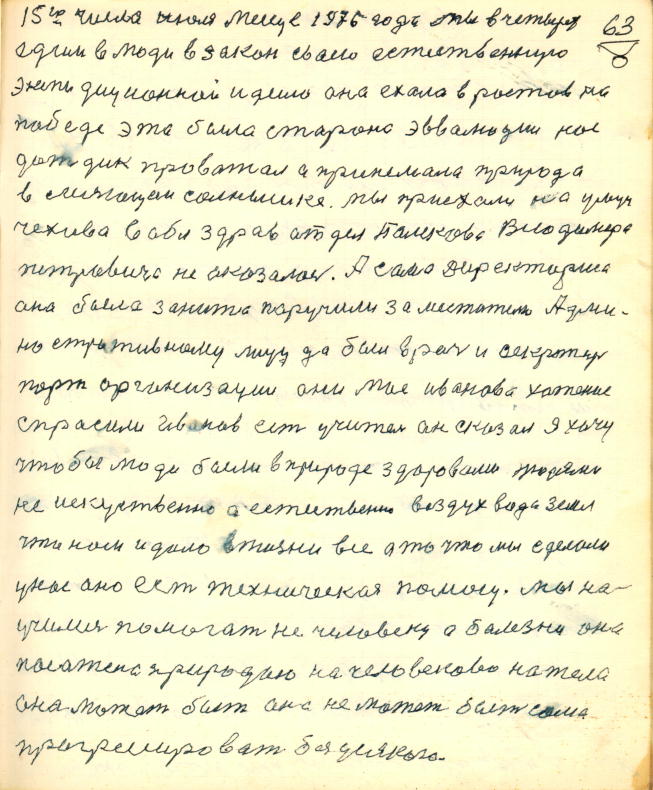 15го числа июля месяце 1976 года мы в четверг 63
едим в люди в закон своего естественную
экспидиционной идею она ехала в ростов на
победе эта была сторона эввалюции нас
дождик проважал а принемала природа
в сиящем солнышке. мы приехали на улицу
чехова в обл здрав отдел Палекова Владимера
петровича не оказалос. А сама директориса
она была занята паручили заместателю Адми-
но стративному лицу да был врач и секротар
парт организации они мое иванова хотение
спрасили Иванов ест учител он сказал я хочу
что бы люди были в природе здоровыми людями
не искуственно а естественно воздух вода земл
что нам и дало в жизни все а то что мы сделали
унас оно ест техническая помощ. мы на-
училис помогат не человеку а болезни она
посажена природаю на человеково на тела
она может быт она не может быт сама
програсироват